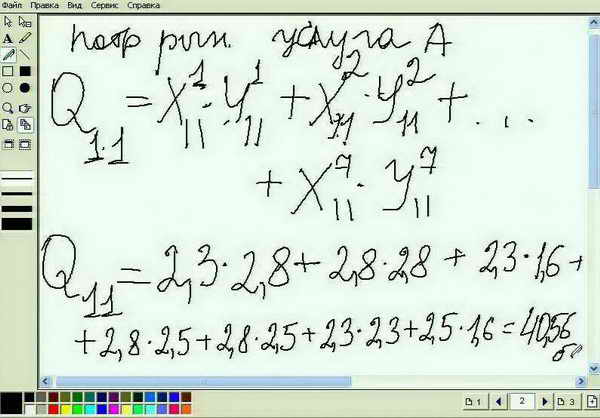 Файл Правка Вид Сервис Справка
потр рын. услуга А
Q₁₁ = X¹₁₁ · Y¹₁₁ + X²₁₁ · Y²₁₁ + ...
+ X⁷₁₁ · Y⁷₁₁
Q₁₁ = 2,3 · 2,8 + 2,8 · 2,8 + 2,3 · 1,6 +
+ 2,8 · 2,5 + 2,8 · 2,5 + 2,3 · 2,3 + 2,5 · 1,6 = 40,56
1 2 3